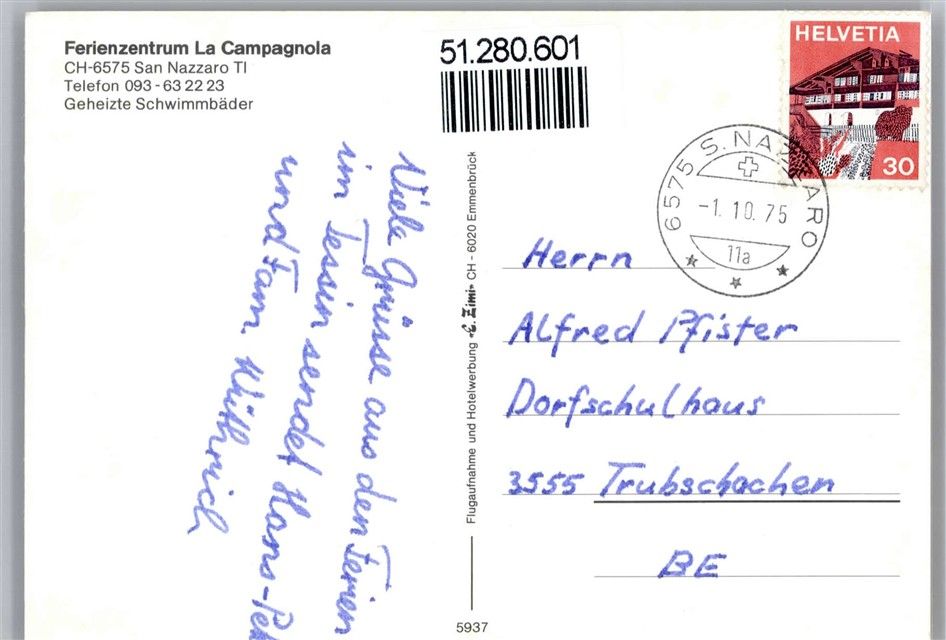 Ferienzentrum La Campagnola
CH-6575 San Nazzaro TI
Telefon 093 - 63 22 23
Geheizte Schwimmbäder
51.280.601
HELVETIA
30
6575 S. NAZZARO
-1. 10. 75
11a
Viele Grüsse aus den Ferien
im Tessin sendet Hans-Pet
und Fam. Wüthrich
Flugaufnahme und Hotelwerbung «E. Zimi» CH - 6020 Emmenbrück
5937
Herrn
Alfred Pfister
Dorfschulhaus
3555 Trubschachen
BE